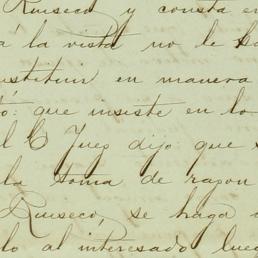 Ruiseco y consta en
á la vista no le ha
stituir en manera
tó: que insiste en lo
l C Juez dijo que s
la toma de razon
Ruiseco, se haga
lo al interesado lue